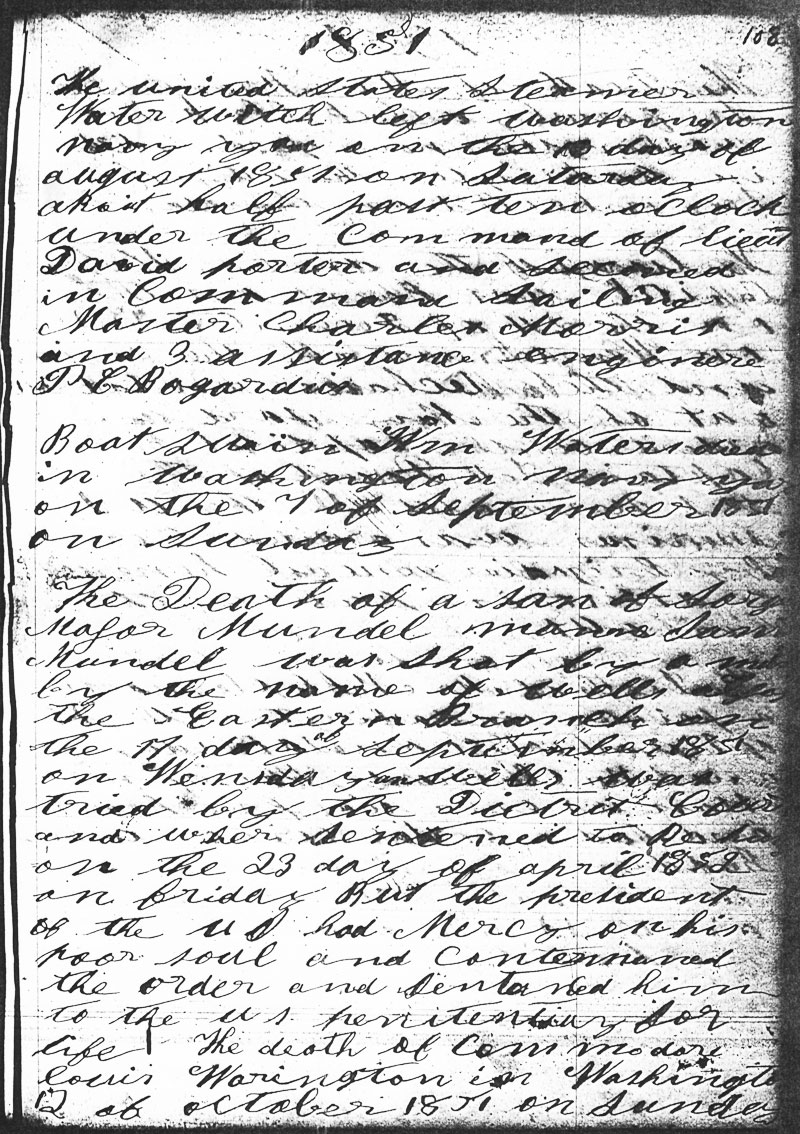 1851
108
The united states Steamer
Water witch left washington
navy yard on the 10 day of
august 1851 on Saturday
about half past ten oClock
under the Command of lieut
David porter and second
in Command Sailing
Master Charles Morris
and 3 assistance enginere
P E Bogardus
Boat Swain Wm Waters died
in washington navy yard
on the 7 of September 1851
on Sunday
The Death of a san of Sarg
Major Mundel
Mundel was Shot by a
by the name of wells
the Eastern Branch on
the 17 day of September 1851
on Wensday an wells was
tried by the Cour
and wher Sentened to be
on the 23 day of april 1852
on friday But the president
of the U S had Mercy on his
poor soul and Contemmaned
the order and Sentanded him
to the u s penitentiary for
life The death of Commodore
louis Warington in Washingto
12 of october 1851 on Sunday